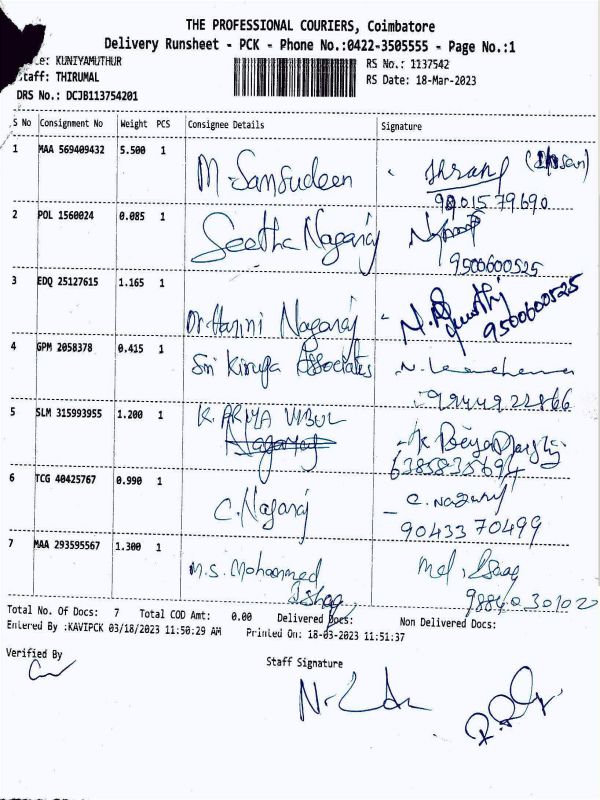 THE PROFESSIONAL COURIERS, Coimbatore
Delivery Runsheet - PCK - Phone No.:0422-3505555 - Page No.:1
: KUNIYAMUTHUR
taff: THIRUMAL
DRS No.: DCJB113754201
RS No.: 1137542
RS Date: 18-Mar-2023
S No Consignment No Weight PCS Consignee Details Signature
1 MAA 569409432 5.500 1 M. Samsudeen
2 POL 1560024 0.085 1 Seetha Nagaraj
9500600525
3 EDQ 25127615 1.165 1 Dr. Harini Nagaraj
9500600525
4 GPM 2058378 0.415 1 Sri Kiruga Associates
5 SLM 315993955 1.200 1 K. ARIYA
Nagaraj
6 TCG 40425767 0.990 1 C. Nagaraj C. Nagaraj
90433 70499
7 MAA 293595567 1.300 1 M.S. Mohammed
Ishaq
98840 30102
Total No. Of Docs: 7 Total COD Amt: 0.00 Delivered Docs: Non Delivered Docs:
Entered By :KAVIPCK 03/18/2023 11:50:29 AM Printed On: 18-03-2023 11:51:37
Verified By
Staff Signature